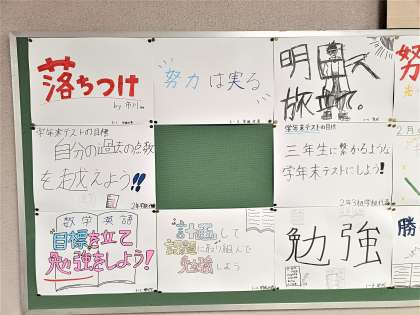 落ちつけ
by 市川
努力は実る
明日へ
旅立て。
努
学年末テストの目標
自分の過去の点数
を越えよう!!
学年末テストの目標
三年生に繋がるような
学年末テストにしよう!
2年3組学級代表
2月
数学 英語
目標を立て
勉強をしよう!
計画して
課題に取り組んで
勉強しよう
勉強
勝